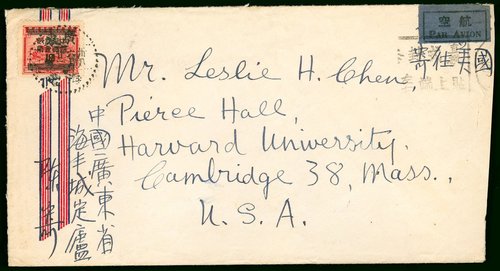 航空
PAR AVION
寄往美國
Mr. Leslie H. Chen,
Pierce Hall,
Harvard University,
Cambridge 38, Mass.,
U. S. A.
中國廣東省
海丰城定廬
陳寿